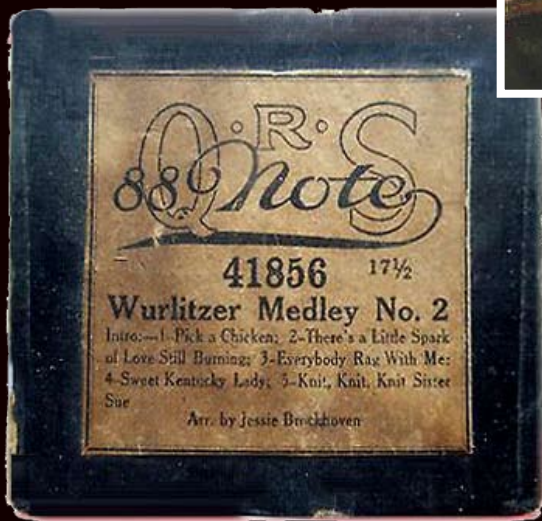 Q·R·S
88 Note
41856 17½
Wurlitzer Medley No. 2
Intro:—1-Pick a Chicken; 2-There's a Little Spark
of Love Still Burning; 3-Everybody Rag With Me;
4-Sweet Kentucky Lady; 5-Knit, Knit, Knit Sister
Sue
Arr. by Jessie Brockhoven